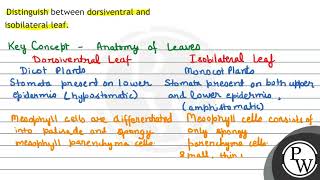 Distinguish between dorsiventral and
isobilateral leaf.
Key Concept - Anatomy of Leaves
Dorsiventral Leaf
Dicot Plants
Stomata present on lower
epidermis (hypostomatic)
Mesophyll cells are differentiated
into palisade and spongy
mesophyll parenchyma cells.
Isobilateral Leaf
Monocot Plants
Stomata present on both upper
and lower epidermis.
(amphistomatic)
Mesophyll cells consists of
only spongy
parenchyma cells
small, thin
PW